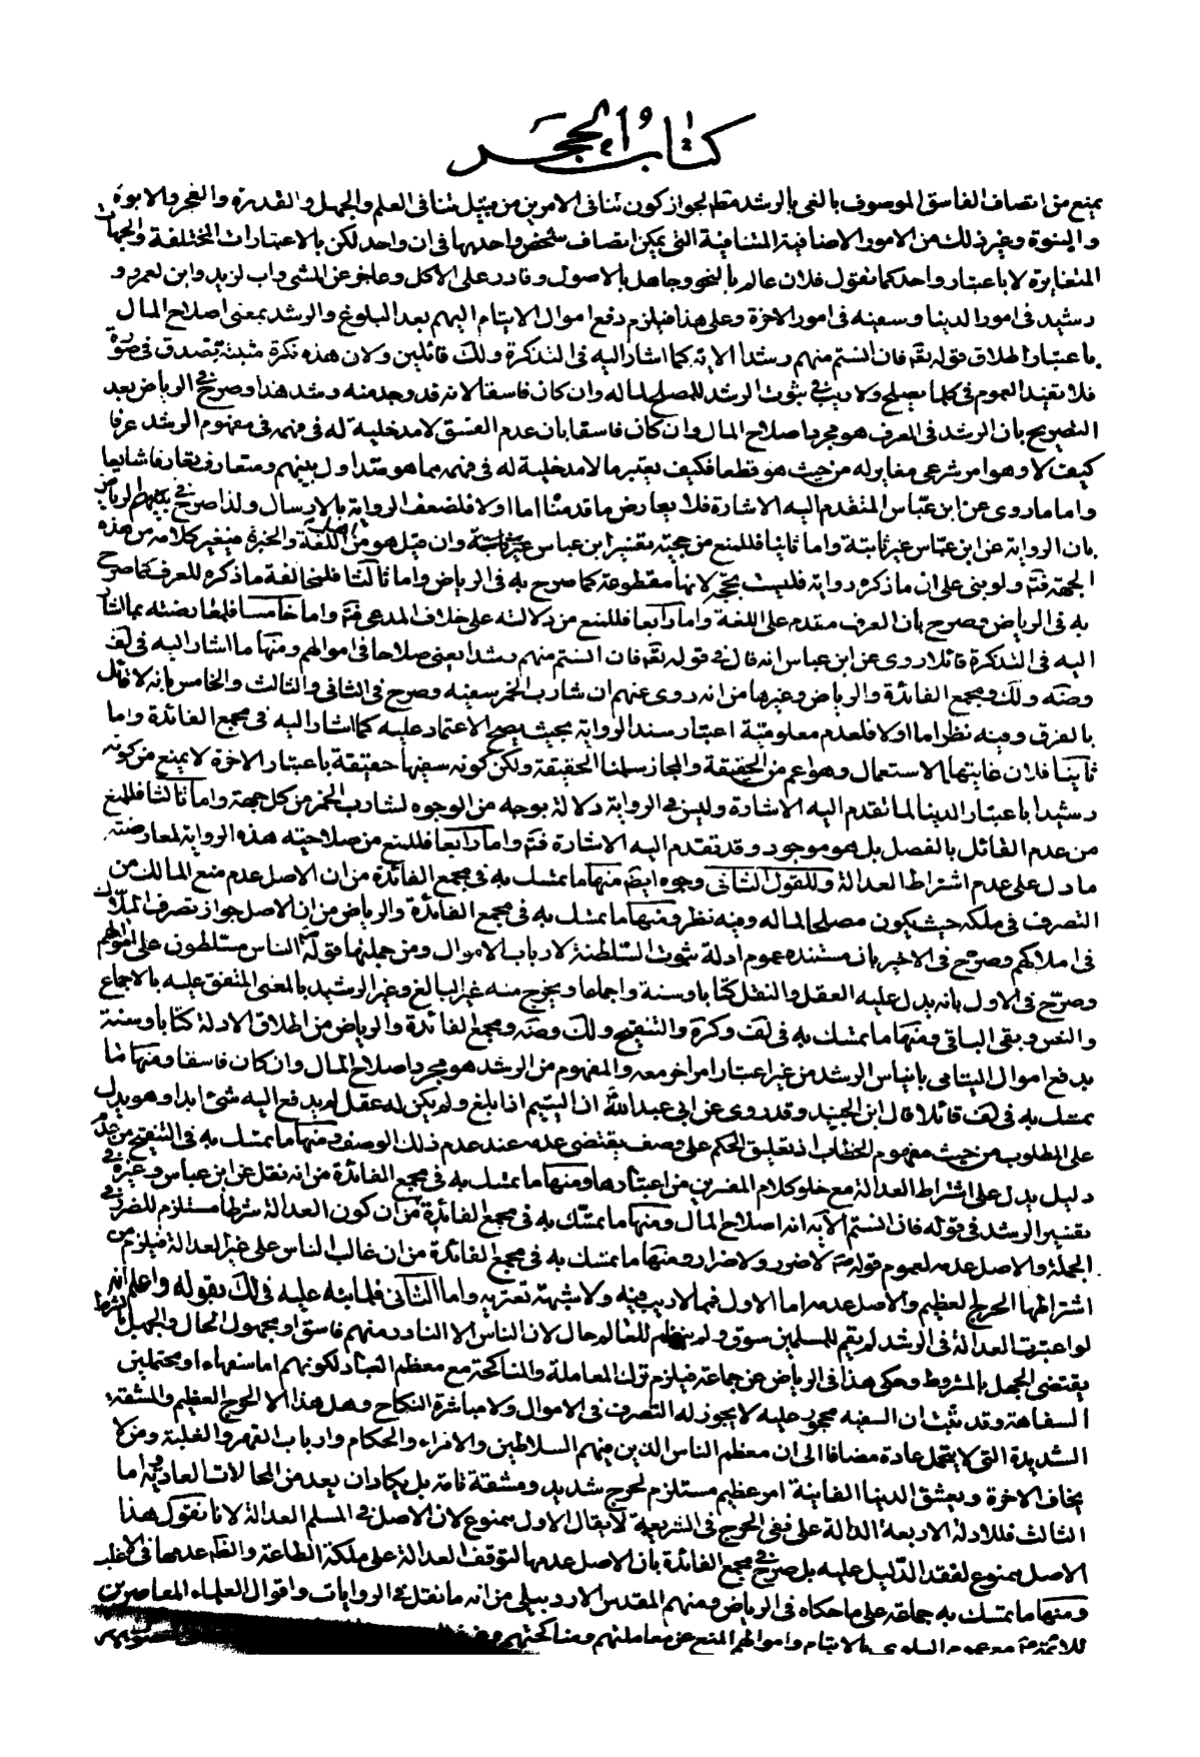 كتاب الحجر
يمنع من اتصاف الفاسق الموصوف بالغي بالرشد مطلقا لجواز كون تنافى الامرين من قبيل تنافى العلم والجهل والقدرة والعجز والابوة
والبنوة وغير ذلك من الامور الاضافية المتنافية التى يمكن اتصاف شخص واحد بها فى ان واحد لكن بالاعتبارات المختلفة والجهات
المتغايرة لا باعتبار واحد كما نقول فلان عالم بالنحو وجاهل بالاصول وقادر على الاكل وعاجز عن المشى واب لزيد وابن لعمرو و
رشيد فى امور الدنيا وسفيه فى امور الاخرة وعلى هذا فيلزم دفع اموال الايتام اليهم بعد البلوغ والرشد بمعنى اصلاح المال
باعتبار اطلاق قوله تعم فان انستم منهم رشدا الاية كما اشار اليه فى التذكرة ولك قائلين ولان هذه نكرة مثبتة تصدق فى صورة
فلا تفيد العموم فى كلما يصلح ولا ريب فى ثبوت الرشد للمصلح لماله وان كان فاسقا لانه قد وجد منه رشد هذا وصرح فى الرياض بعد
التصريح بان الرشد فى العرف هو مجرد اصلاح المال وان كان فاسقا بان عدم الفسق لا مدخلية له فى فهمه فى مفهوم الرشد عرفا
كيف لا وهو امر شرعى مغاير له من حيث هو قطعا فكيف يعتبر ما لا مدخلية له فى فهمه مما هو متداول بينهم ومتعارف
واما ما روى عن ابن عباس المتقدم اليه الاشارة فلا يعارض ما قدمنا اما اولا فلضعف الرواية بالارسال ولذا صرح فى
بان الرواية عن ابن عباس غير ثابتة واما ثانيا فللمنع من حجية تفسير ابن عباس وان قيل هو من اهل اللغة والخبرة فيتغير كلامه من هذه
الجهة فتم ولو بنى على ان ما ذكره رواية فليست بحجة لانها مقطوعة كما صرح به فى الرياض واما ثالثا فلمخالفة ما ذكره للعرف كما صرح
به فى الرياض مصرح بان العرف مقدم على اللغة واما رابعا فللمنع من دلالته على خلاف المدعى فتم واما خامسا فلمعارضته بما اشار
اليه فى التذكرة قائلا روى عن ابن عباس انه قال فى قوله تعم فان انستم منهم رشدا يعنى صلاحا فى اموالهم ومنها ما اشار اليه فى لف
وضة ولك ومجمع الفائدة والرياض وغيرها من انه روى عنهم ان شارب الخمر سفيه وصرح فى الثانى والثالث والخامس بانه لا قائل
بالفرق وفيه نظر اما اولا فلعدم معلومية اعتبار سند الرواية بحيث يصح الاعتماد عليه كما اشار اليه فى مجمع الفائدة واما
ثانيا فلان غايتها الاستعمال وهو اعم من الحقيقة والمجاز سلمنا الحقيقة ولكن كونه سفيها حقيقة باعتبار الاخرة لا يمنع من كونه
رشيدا باعتبار الدنيا لما تقدم اليه الاشارة وليس فى الرواية دلالة بوجه من الوجوه لشارب الخمر من كل جهة واما ثالثا فللمنع
من عدم القائل بالفصل بل هو موجود وقد تقدم اليه الاشارة فتم واما رابعا فللمنع من صلاحية هذه الرواية لمعارضة
ما دل على عدم اشتراط العدالة وللقول الثانى وجوه ايضا منها ما تمسك به فى مجمع الفائدة من ان الاصل عدم منع المالك من
التصرف فى ملكه حيث يكون مصلحا لماله وفيه نظر ومنها ما تمسك به فى مجمع الفائدة والرياض من ان الاصل جواز تصرف الملاك
فى املاكهم وصرح فى الاخير بان مستنده عموم ادلة ثبوت السلطنة لارباب الاموال ومن جملتها قوله الناس مسلطون على اموالهم
وصرح فى الاول بانه يدل عليه العقل والنقل كتابا وسنة واجماعا ويخرج منه غير البالغ وغير الرشيد بالمعنى المتفق عليه بالاجماع
والنص وبقى الباقى ومنها ما تمسك به فى لف وكرة والتنقيح ولك وضة ومجمع الفائدة والرياض من اطلاق الادلة كتابا وسنة
بدفع اموال اليتامى بايناس الرشد من غير اعتبار امر اخر معه والمفهوم من الرشد هو مجرد اصلاح المال وان كان فاسقا ومنها ما
تمسك به فى لف قائلا قال ابن الجنيد وقد روى عن ابى عبد الله ان اليتيم اذا بلغ ولم يكن له عقل لم يدفع اليه شئ ابدا وهو يدل
على المطلوب من حيث مفهوم الخطاب اذ تعليق الحكم على وصف يقتضى عدمه عند عدم ذلك الوصف ومنها ما تمسك به فى التنقيح من عدم
دليل يدل على اشتراط العدالة مع خلو كلام المفسرين من اعتبارها ومنها ما تمسك به فى مجمع الفائدة من انه نقل عن ابن عباس وغيره فى
تفسير الرشد فى قوله فان انستم الاية انه اصلاح المال ومنها ما تمسك به فى مجمع الفائدة من ان كون العدالة شرطا مستلزم للضرر فى
الجملة والاصل عدمه لعموم قوله لا ضرر ولا ضرار ومنها ما تمسك به فى مجمع الفائدة من ان غالب الناس على غير العدالة فيلزم من
اشتراطها الحرج العظيم والاصل عدمه اما الاول فمما لا ريب فيه ولا شبهة تعتريه واما الثانى فلما نبه عليه فى لك بقوله واعلم انه
لو اعتبرت العدالة فى الرشد لم يقم للمسلمين سوق ولم ينتظم للعالم حال لان الناس الا النادر منهم فاسق او مجهول الحال والجهل بالشرط
يقتضى الجهل بالمشروط وحكى هذا فى الرياض عن جماعة فيلزم ترك المعاملة والمناكحة مع معظم العباد لكونهم اما سفهاء او محتملين
السفاهة وقد ثبت ان السفيه محجور عليه لا يجوز له التصرف فى الاموال ولا مباشرة النكاح وهل هذا الا الحرج العظيم والمشقة
الشديدة التى لا يتحمل عادة مضافا الى ان معظم الناس الذين منهم السلاطين والامراء والحكام وارباب القهر والغلبة ومن لا
يخاف الاخرة ويعشق الدنيا الفانية امر عظيم مستلزم لحرج شديد ومشقة تامة بل يكاد ان يعد من المحالات العادية واما
الثالث فللادلة الاربعة الدالة على نفى الحرج فى الشريعة لا يقال الاول ممنوع لان الاصل فى المسلم العدالة لانا نقول هذا
الاصل ممنوع لفقد الدليل عليه بل صرح فى مجمع الفائدة بان الاصل عدمها لتوقف العدالة على ملكة الطاعة والظاهر عدمها فى الاغلب
ومنها ما تمسك به جماعة على ما حكاه فى الرياض ومنهم المقدس الاردبيلى من انه ما نقل فى الروايات واقوال العلماء المعاصرين
للائمة مع عموم البلوى بالايتام واموالهم المنع عن معاملتهم ومناكحتهم